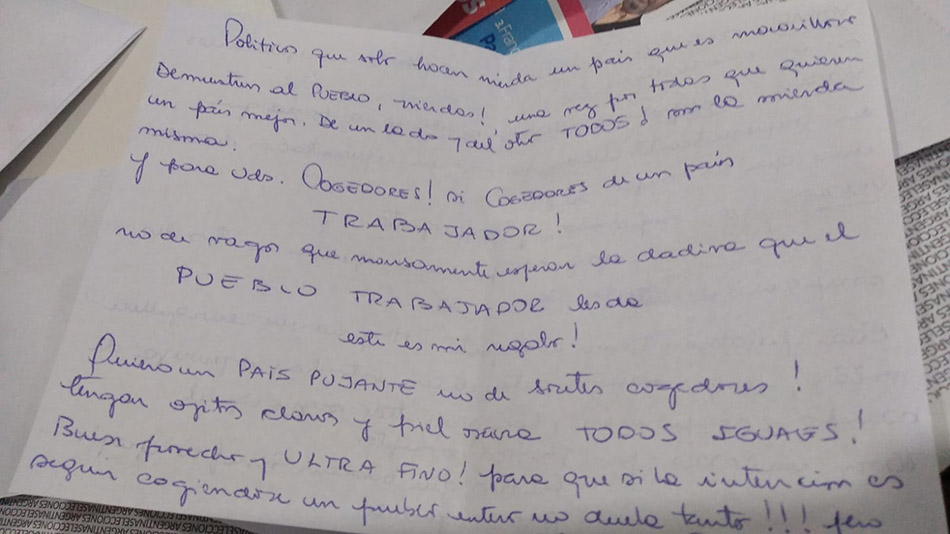 Politicos que solo hacen mierda un pais que es maravilloso
Demuestren al PUEBLO, mierdas! una vez por todas que quieren
un país mejor. De un lado y del otro TODOS! son la mierda
misma.
y para uds. COGEDORES! si COGEDORES de un país
TRABAJADOR!
no de vagos que mansamente esperan la dadiva que el
PUEBLO TRABAJADOR les da
este es mi regalo!
Quiero un PAIS PUJANTE no de cogedores!
tengan ojitos claros y piel TODOS IGUALES!
Buen provecho y ULTRA FINO! para que si la intencion es
seguir cogiendose un pueblo entero no duela tanto!!! pero